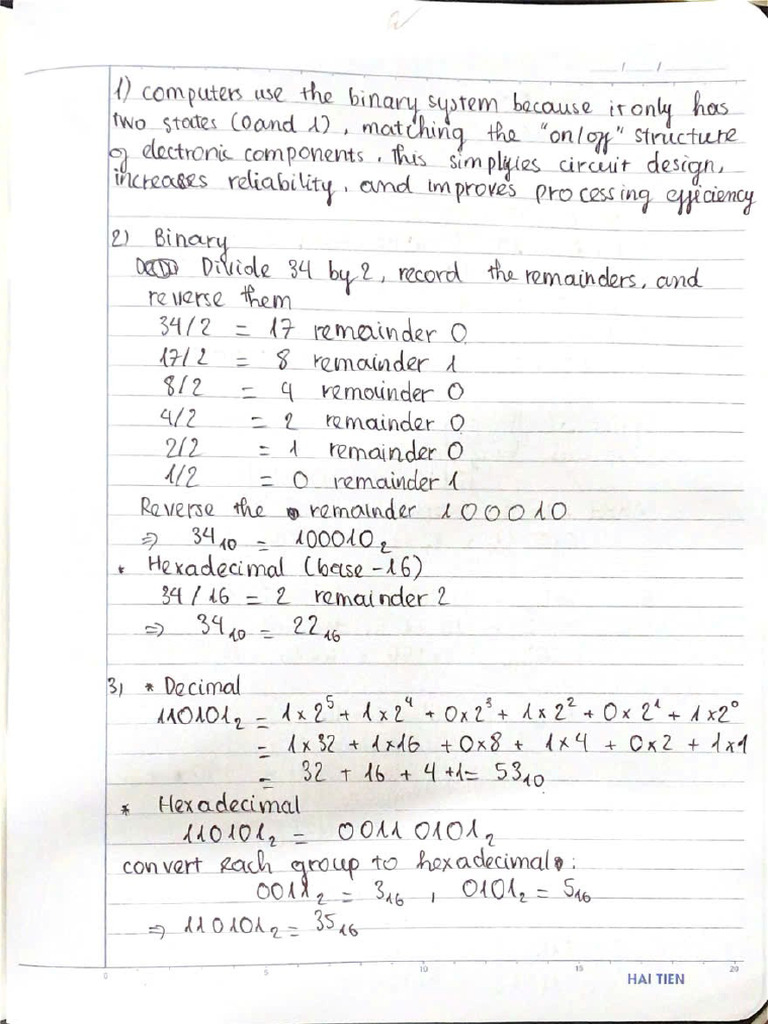 1) computers use the binary system because it only has
two states (0 and 1), matching the "on/off" structure
of electronic components. This simplyies circuit design,
increases reliability, and improves processing efficiency
2) Binary
Divide 34 by 2, record the remainders, and
reverse them
34/2 = 17 remainder 0
17/2 = 8 remainder 1
8/2 = 4 remainder 0
4/2 = 2 remainder 0
2/2 = 1 remainder 0
1/2 = 0 remainder 1
Reverse the remainder 100010
⇒ 34₁₀ = 100010₂
* Hexadecimal (base-16)
34/16 = 2 remainder 2
⇒ 34₁₀ = 22₁₆
3) * Decimal
110101₂ = 1×2⁵ + 1×2⁴ + 0×2³ + 1×2² + 0×2¹ + 1×2⁰
= 1×32 + 1×16 + 0×8 + 1×4 + 0×2 + 1×1
= 32 + 16 + 4 + 1 = 53₁₀
* Hexadecimal
110101₂ = 0011 0101₂
convert each group to hexadecimal:
0011₂ = 3₁₆ , 0101₂ = 5₁₆
⇒ 110101₂ = 35₁₆
0 5 10 15 20
HAI TIEN